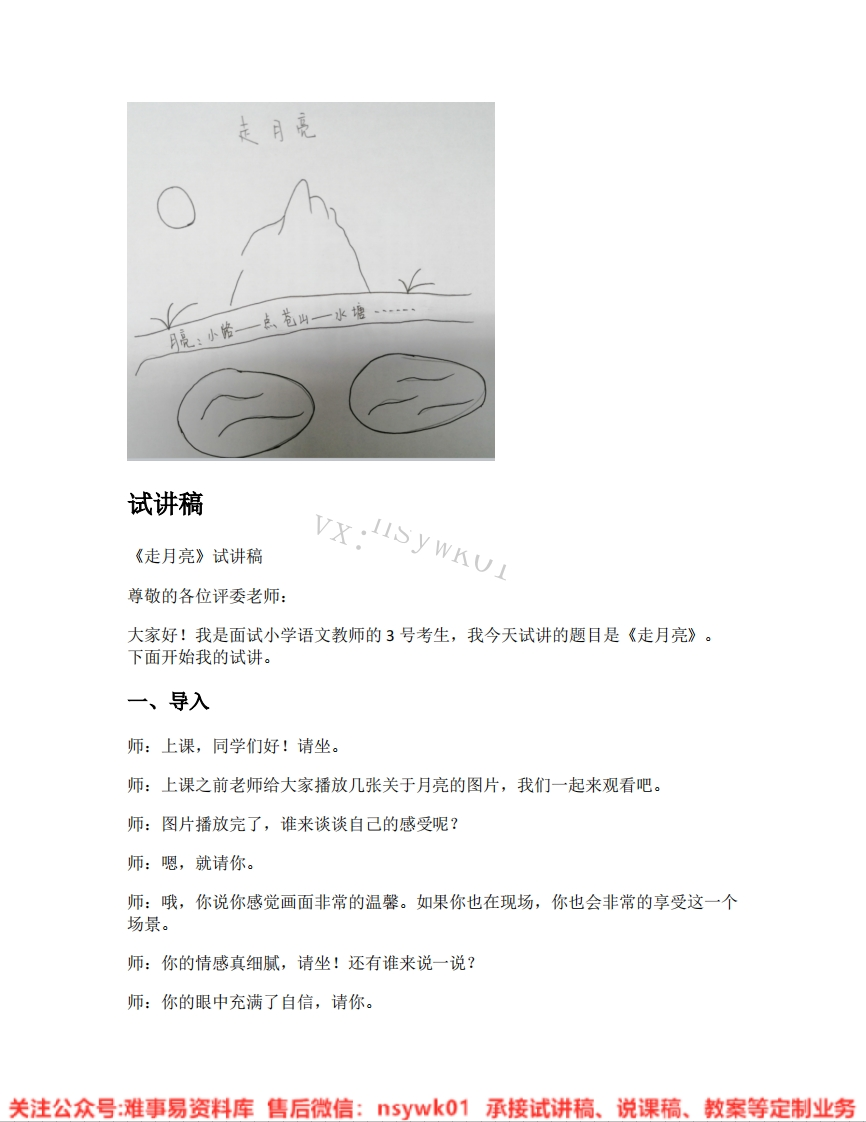 走月亮
月亮:小路——点苍山——水塘······
试讲稿
VX:nsywk01
《走月亮》试讲稿
尊敬的各位评委老师:
大家好!我是面试小学语文教师的 3 号考生,我今天试讲的题目是《走月亮》。
下面开始我的试讲。
一、导入
师:上课,同学们好!请坐。
师:上课之前老师给大家播放几张关于月亮的图片,我们一起来观看吧。
师:图片播放完了,谁来谈谈自己的感受呢?
师:嗯,就请你。
师:哦,你说你感觉画面非常的温馨。如果你也在现场,你也会非常的享受这一个
场景。
师:你的情感真细腻,请坐!还有谁来说一说?
师:你的眼中充满了自信,请你。
关注公众号:难事易资料库 售后微信:nsywk01 承接试讲稿、说课稿、教案等定制业务